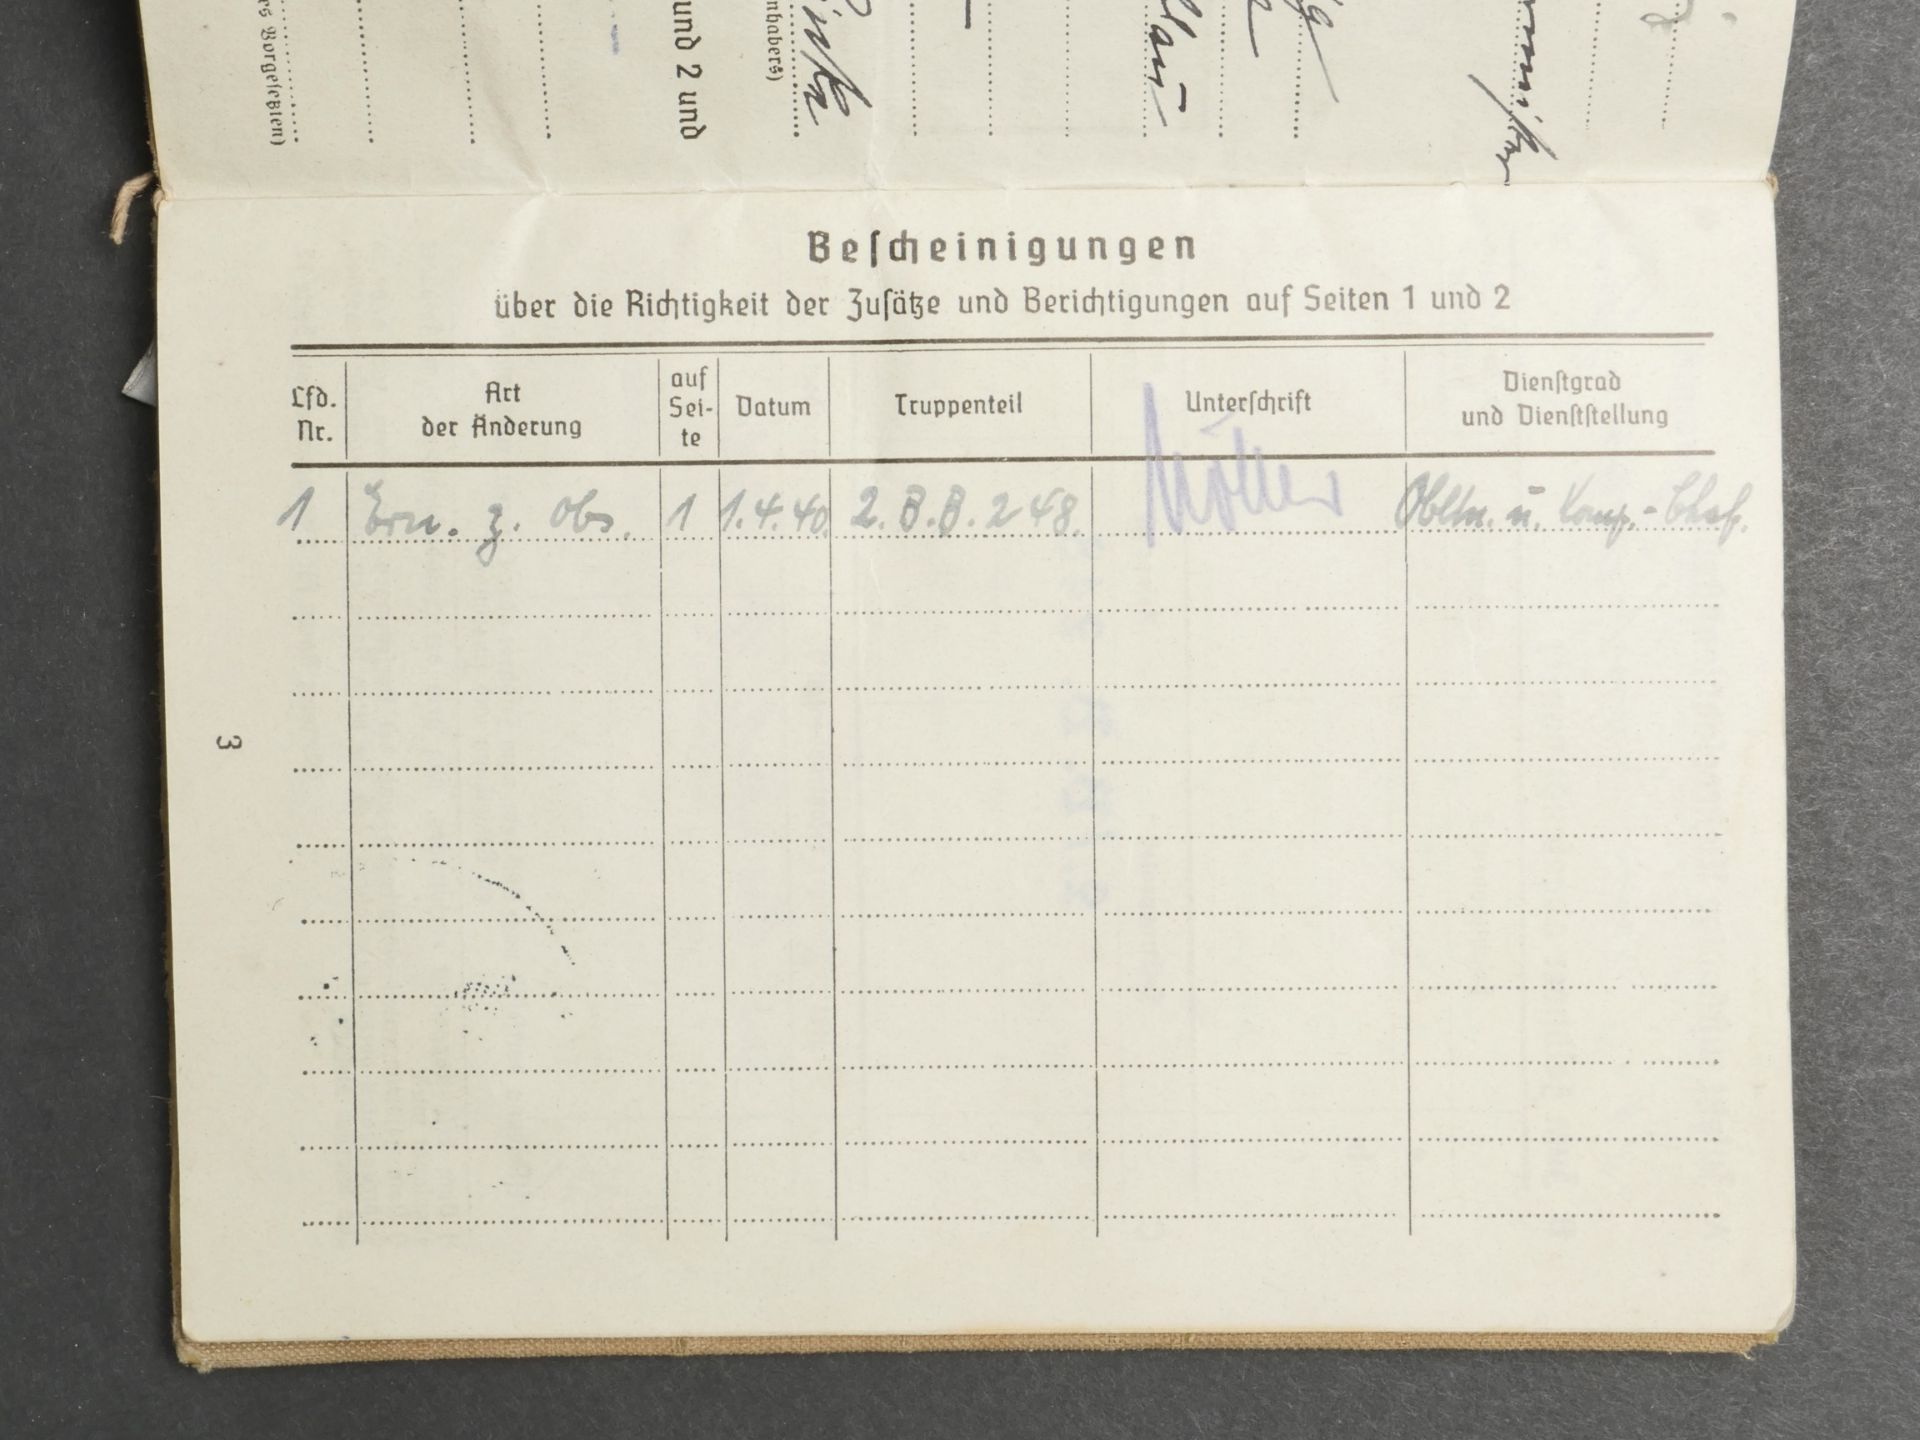 es Vorgesetzten)
und 2 und
nhabers)
Bescheinigungen
über die Richtigkeit der Zusätze und Berichtigungen auf Seiten 1 und 2
Lfd. Nr.
Art der Änderung
auf Sei- te
Datum
Truppenteil
Unterschrift
Dienstgrad und Dienststellung
1 Ern. z. Obs. 1 1.4.40. 2. B.B. 248. Obltn. u. Komp.-Chef.
3